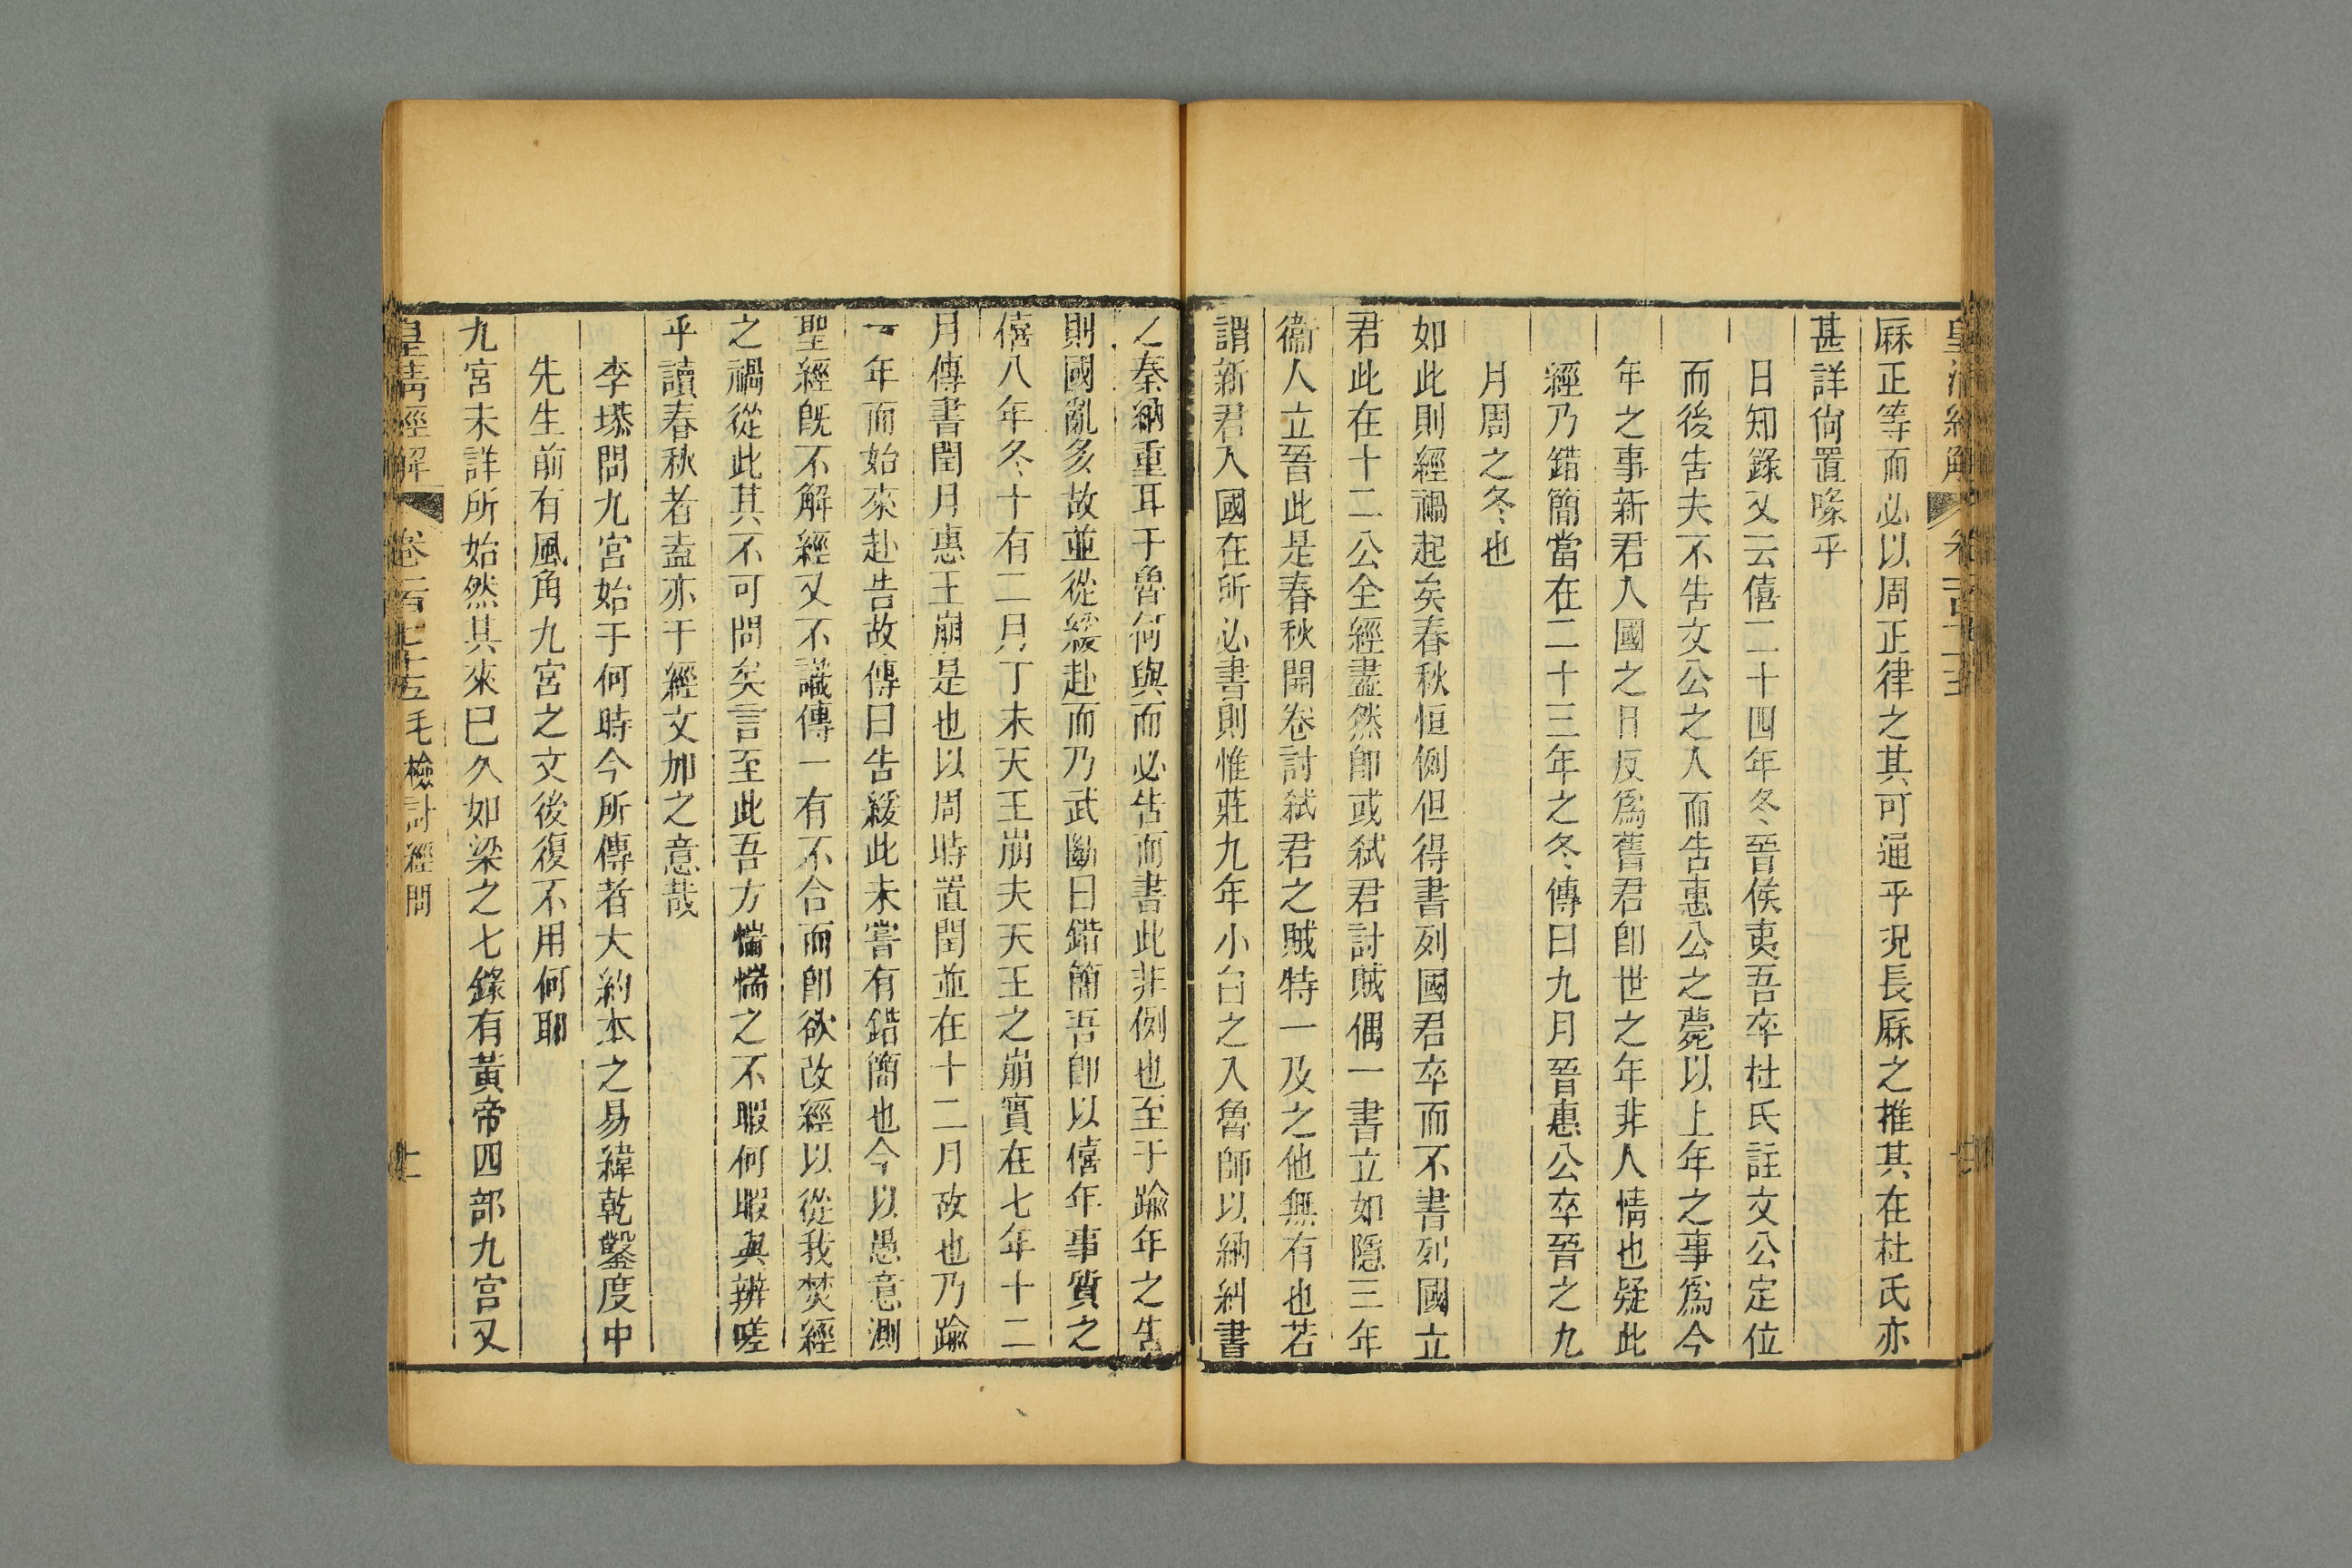 厤正等而必以周正律之其可通乎況長厤之推其在杜氏亦
甚詳尙置喙乎
日知錄又云僖二十四年冬晉侯夷吾卒杜氏註文公定位
而後告夫不告文公之入而告惠公之薨以上年之事爲今
年之事新君入國之日反爲舊君卽世之年非人情也疑此
經乃錯簡當在二十三年之冬傳曰九月晉惠公卒晉之九
月周之冬也
如此則經禍起矣春秋恒例但得書列國君卒而不書列國立
君此在十二公全經盡然卽或弑君討賊偶一書立如隱三年
衞人立晉此是春秋開卷討弑君之賊特一及之他無有也若
謂新君入國在所必書則惟莊九年小白之入魯師以納糾書
之秦納重耳于魯何與而必告而書此非例也至于踰年之告
則國亂多故並從緩赴而乃武斷曰錯簡吾卽以僖年事質之
僖八年冬十有二月丁未天王崩夫天王之崩實在七年十二
月傳書閏月惠王崩是也以周時置閏並在十二月故也乃踰
一年而始來赴告故傳曰告緩此未嘗有錯簡也今以愚意測
聖經旣不解經又不識傳一有不合而卽欲改經以從我焚經
之禍從此其不可問矣言至此吾方惴惴之不暇何暇與辨嗟
乎讀春秋者盍亦于經文加之意哉
李塨問九宮始于何時今所傳者大約本之易緯乾鑿度中
先生前有風角九宮之文後復不用何耶
九宮未詳所始然其來已久如梁之七錄有黃帝四部九宮又
皇淸經解 卷一百七十五 毛檢討經問